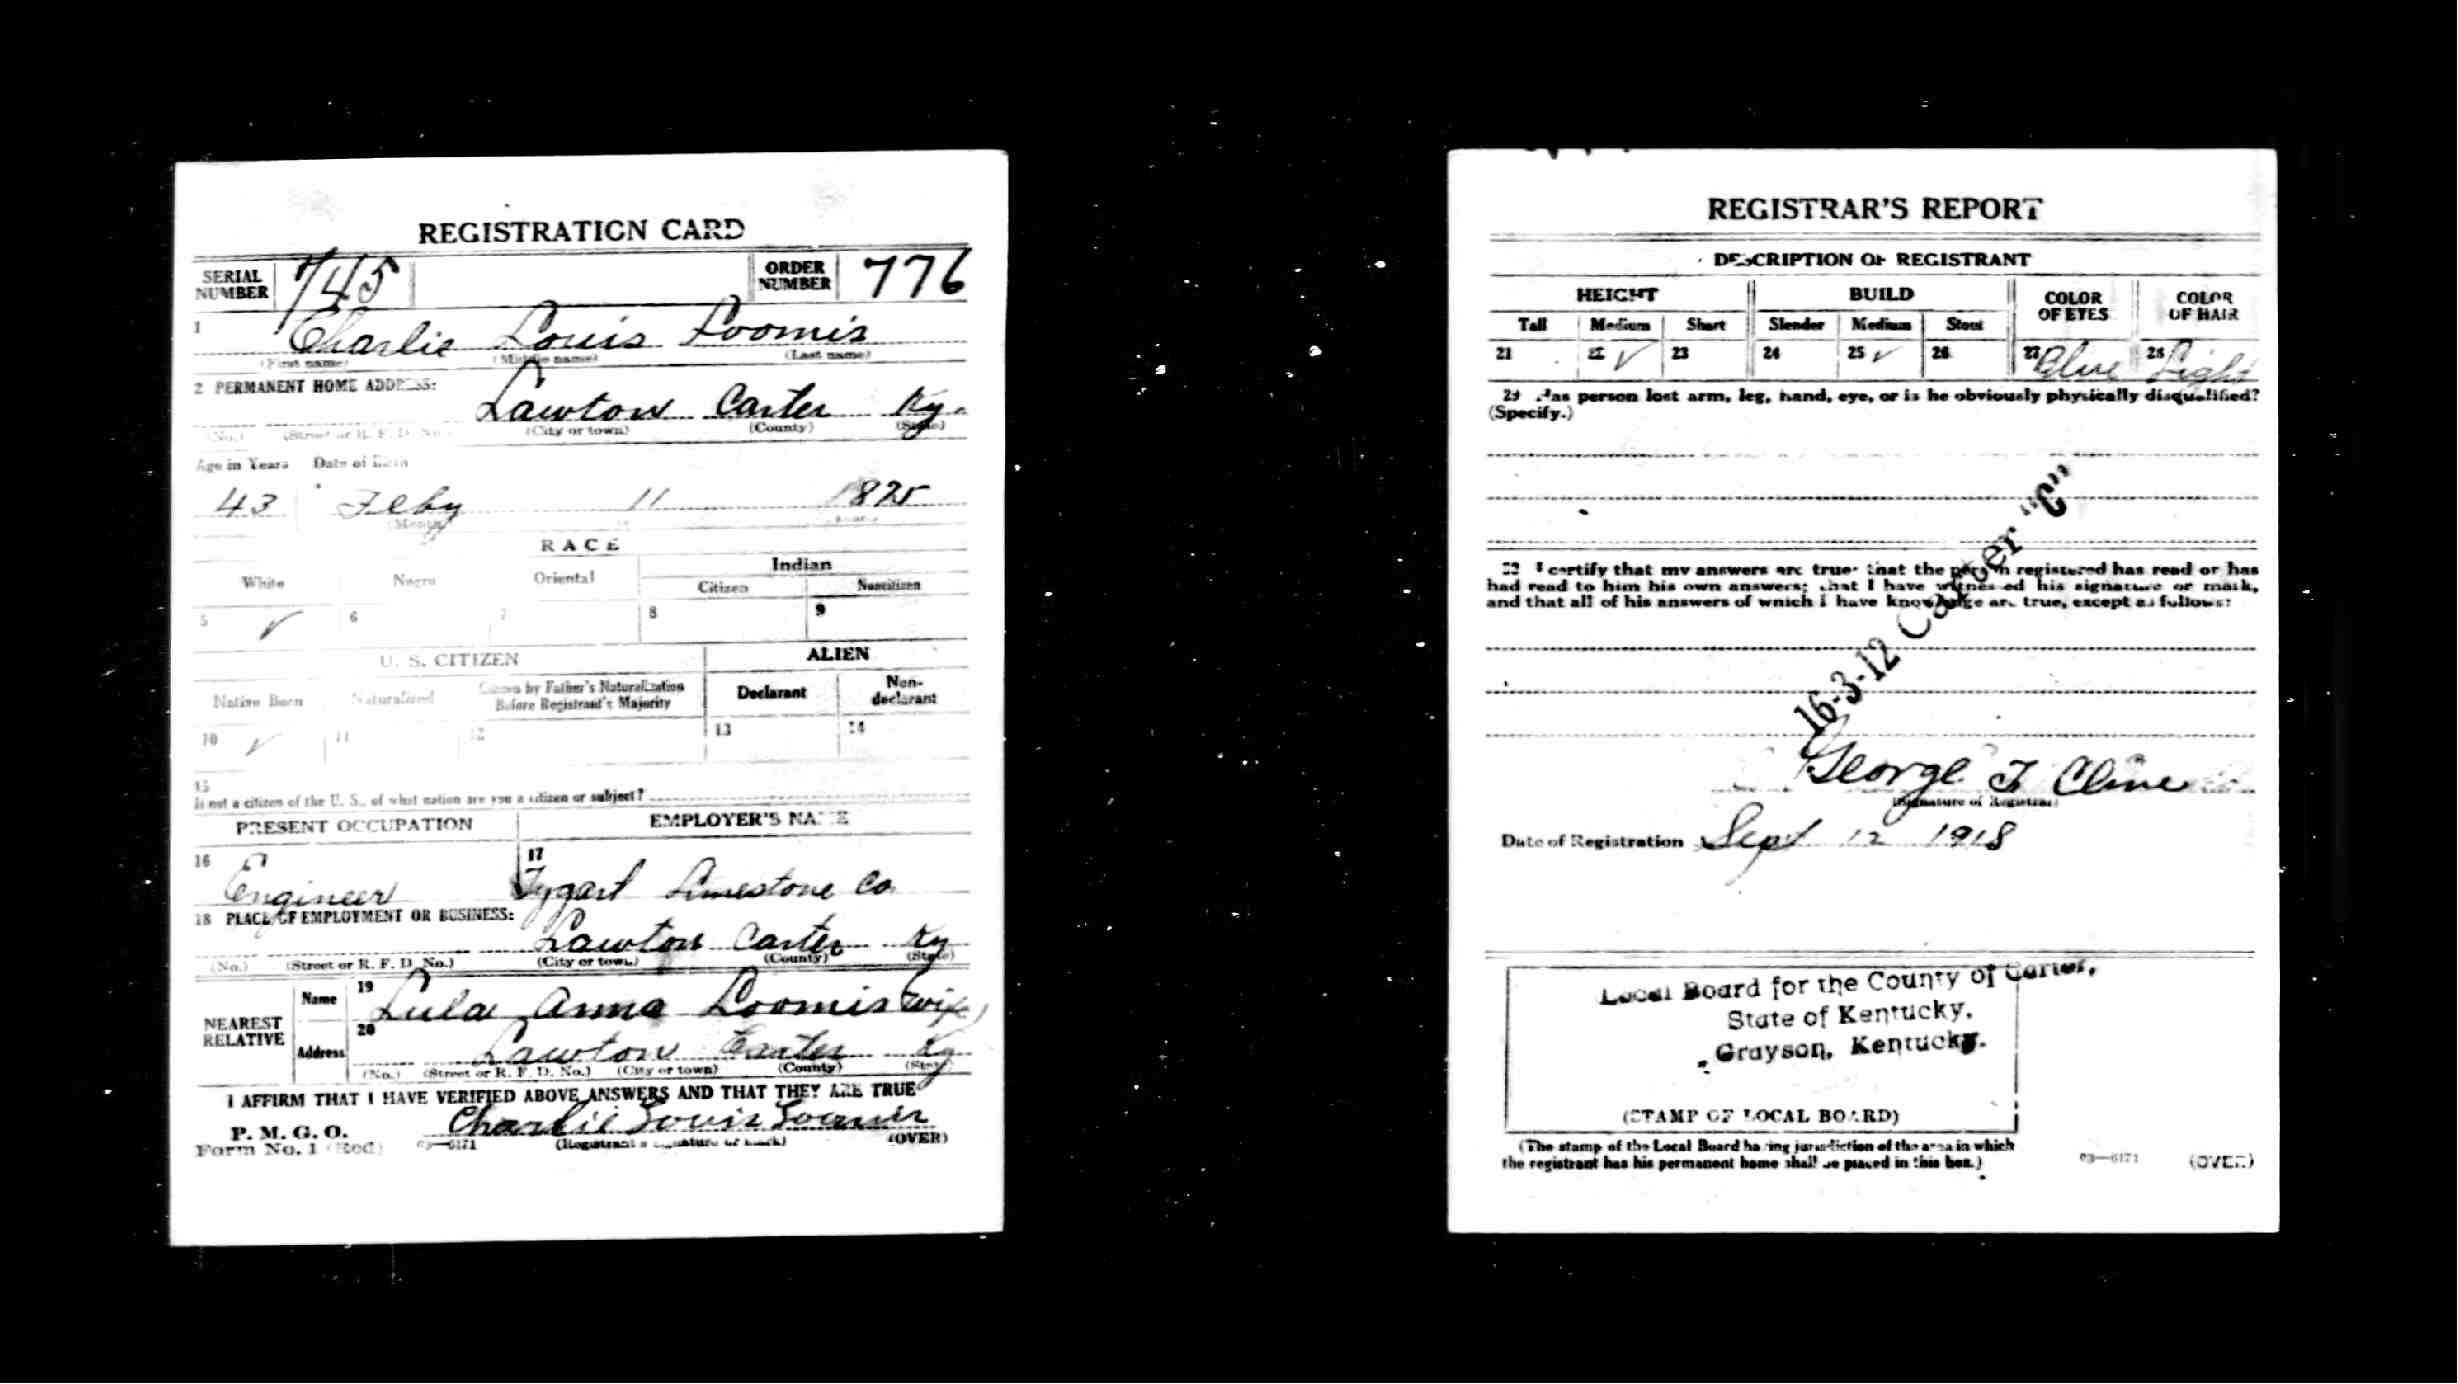 REGISTRATION CARD
SERIAL NUMBER 745 ORDER NUMBER 776
1 Charlie Louis Loomis
(First name) (Middle name) (Last name)
2 PERMANENT HOME ADDRESS:
Lawton Carter Ky.
(No.) (Street or R. F. D. No.) (City or town) (County) (State)
Age in Years Date of Birth
43 Feby 11 1875
(Month)
RACE
White Negro Oriental Indian
Citizen Noncitizen
5 ✓ 6 7 8 9
U. S. CITIZEN ALIEN
Native Born Naturalized Citizen by Father's Naturalization Before Registrant's Majority Declarant Non-declarant
10 ✓ 11 12 13 14
15
If not a citizen of the U. S., of what nation are you a citizen or subject?
PRESENT OCCUPATION EMPLOYER'S NAME
16 Engineer 17 Tygart Limestone Co.
18 PLACE OF EMPLOYMENT OR BUSINESS:
Lawton Carter Ky
(No.) (Street or R. F. D. No.) (City or town) (County) (State)
NEAREST RELATIVE Name 19 Lula Anna Loomis (wife)
Address 20 Lawton Carter Ky
(No.) (Street or R. F. D. No.) (City or town) (County) (State)
I AFFIRM THAT I HAVE VERIFIED ABOVE ANSWERS AND THAT THEY ARE TRUE
P. M. G. O.
Form No. 1 (Red) 03—6171 Charlie Louis Loomis
(Registrant's signature or mark) (OVER)
REGISTRAR'S REPORT
DESCRIPTION OF REGISTRANT
HEIGHT BUILD COLOR OF EYES COLOR OF HAIR
Tall Medium Short Slender Medium Stout
21 22 ✓ 23 24 25 ✓ 26 27 Blue 28 Light
29 Has person lost arm, leg, hand, eye, or is he obviously physically disqualified?
(Specify.)
30 I certify that my answers are true; that the person registered has read or has
had read to him his own answers; that I have witnessed his signature or mark,
and that all of his answers of which I have knowledge are true, except as follows:
16-3-12 Carter "C"
George T Cline
(Signature of Registrar)
Date of Registration Sept 12 1918
Local Board for the County of Carter,
State of Kentucky,
Grayson, Kentucky.
(STAMP OF LOCAL BOARD)
(The stamp of the Local Board having jurisdiction of the area in which
the registrant has his permanent home shall be placed in this box.)
03—6171 (OVER)